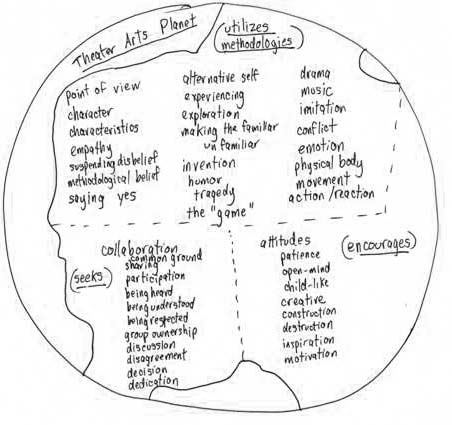 Theater Arts Planet
utilizes
methodologies
point of view
character
characteristics
empathy
suspending disbelief
methodological belief
saying yes
alternative self
experiencing
exploration
making the familiar
unfamiliar
invention
humor
tragedy
the "game"
drama
music
imitation
conflict
emotion
physical body
movement
action/reaction
collaboration
common ground
sharing
participation
being heard
being understood
being respected
group ownership
discussion
disagreement
decision
dedication
(seeks)
attitudes
patience
open-mind
child-like
creative
construction
destruction
inspiration
motivation
(encourages)